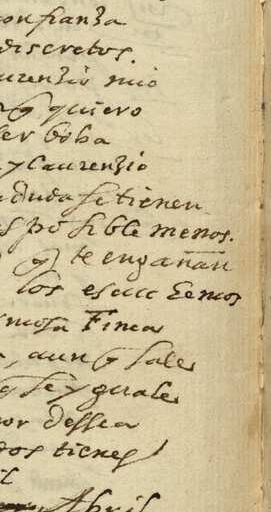 confiança
discretos.
aurenzio mio
q̃ quiero
ser boba
y laurenzio
duda se tienen
es posible menos.
q̃ te engañan
los escuchemos
ermosa Finea
, aunq̃ sale
q̃ se yguale
or dessea
dos tienes
il
Abril